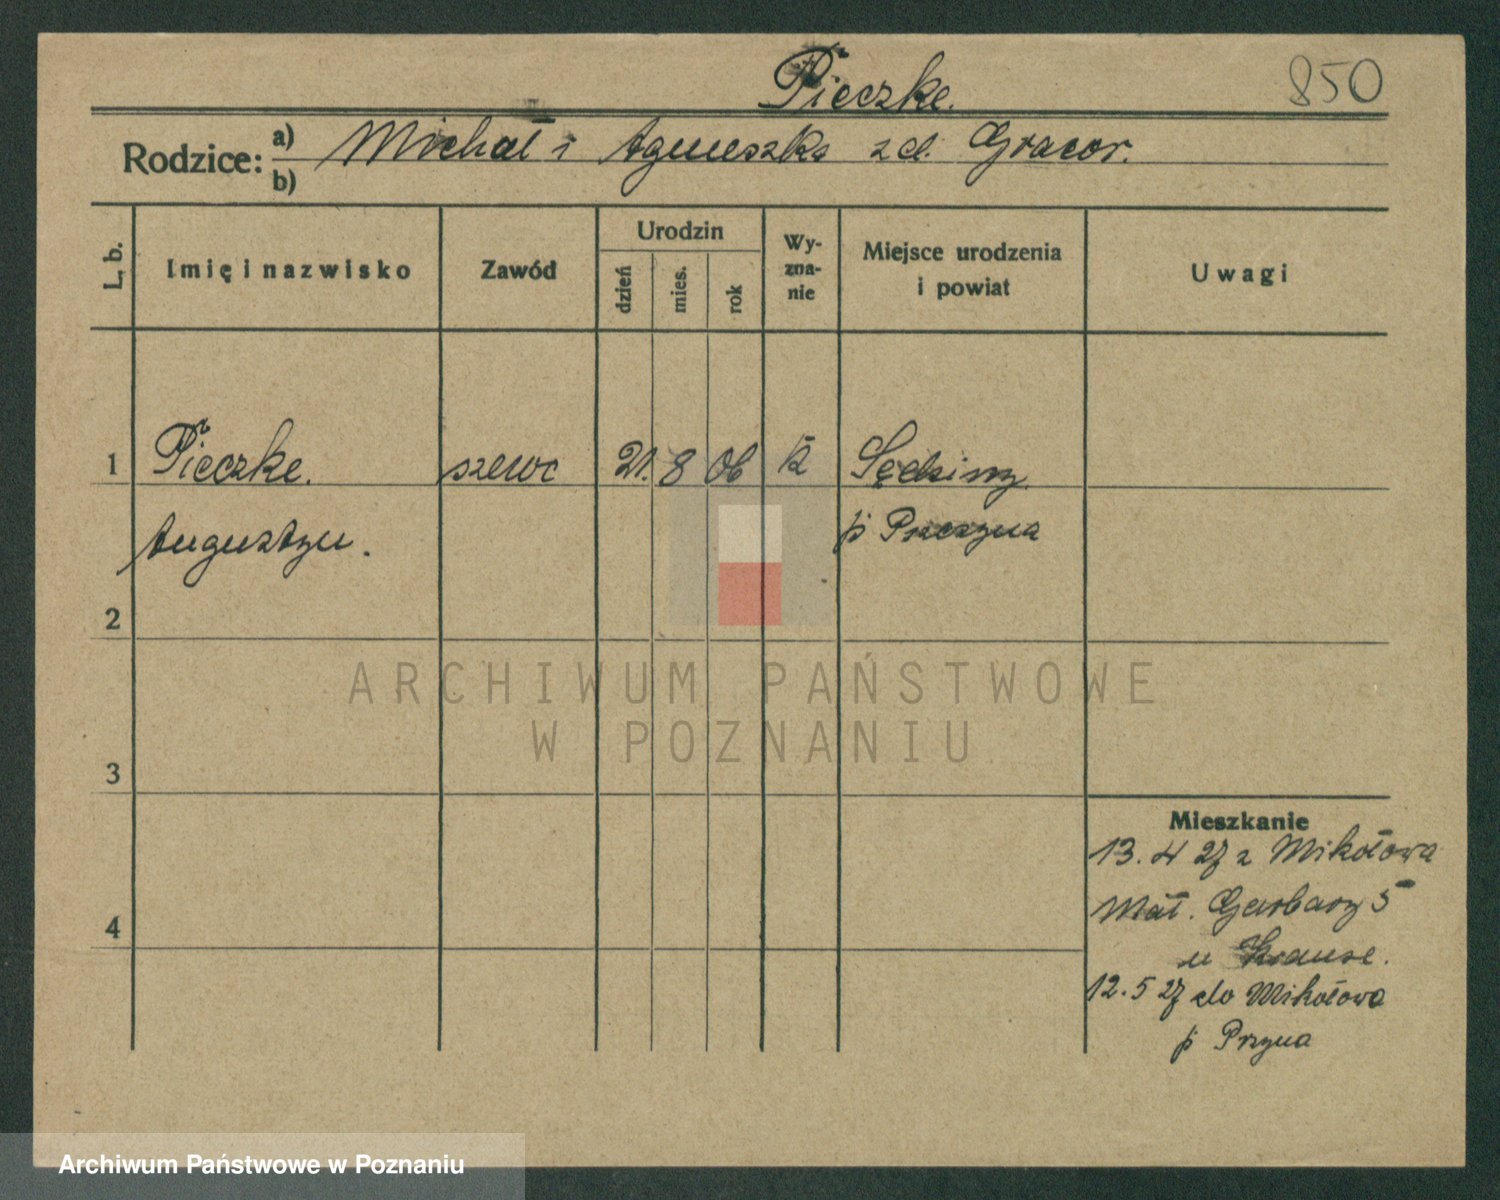 Pieczke.
850
Rodzice:
a) Michał i Agnieszka zd. Gracor.
b)
L. b.
Imię i nazwisko
Zawód
Urodzin
dzień
mies.
rok
Wy-
zna-
nie
Miejsce urodzenia
i powiat
Uwagi
1 Pieczke. szewc 21. 8 06 k
Augustyn.
p
2
3
4
Mieszkanie
13. 4 27 z Mikołowa
Mał. Garbary 5
u Krause.
12. 5 27 do Mikołowa
p
ARCHIWUM PAŃSTWOWE
W POZNANIU
Archiwum Państwowe w Poznaniu